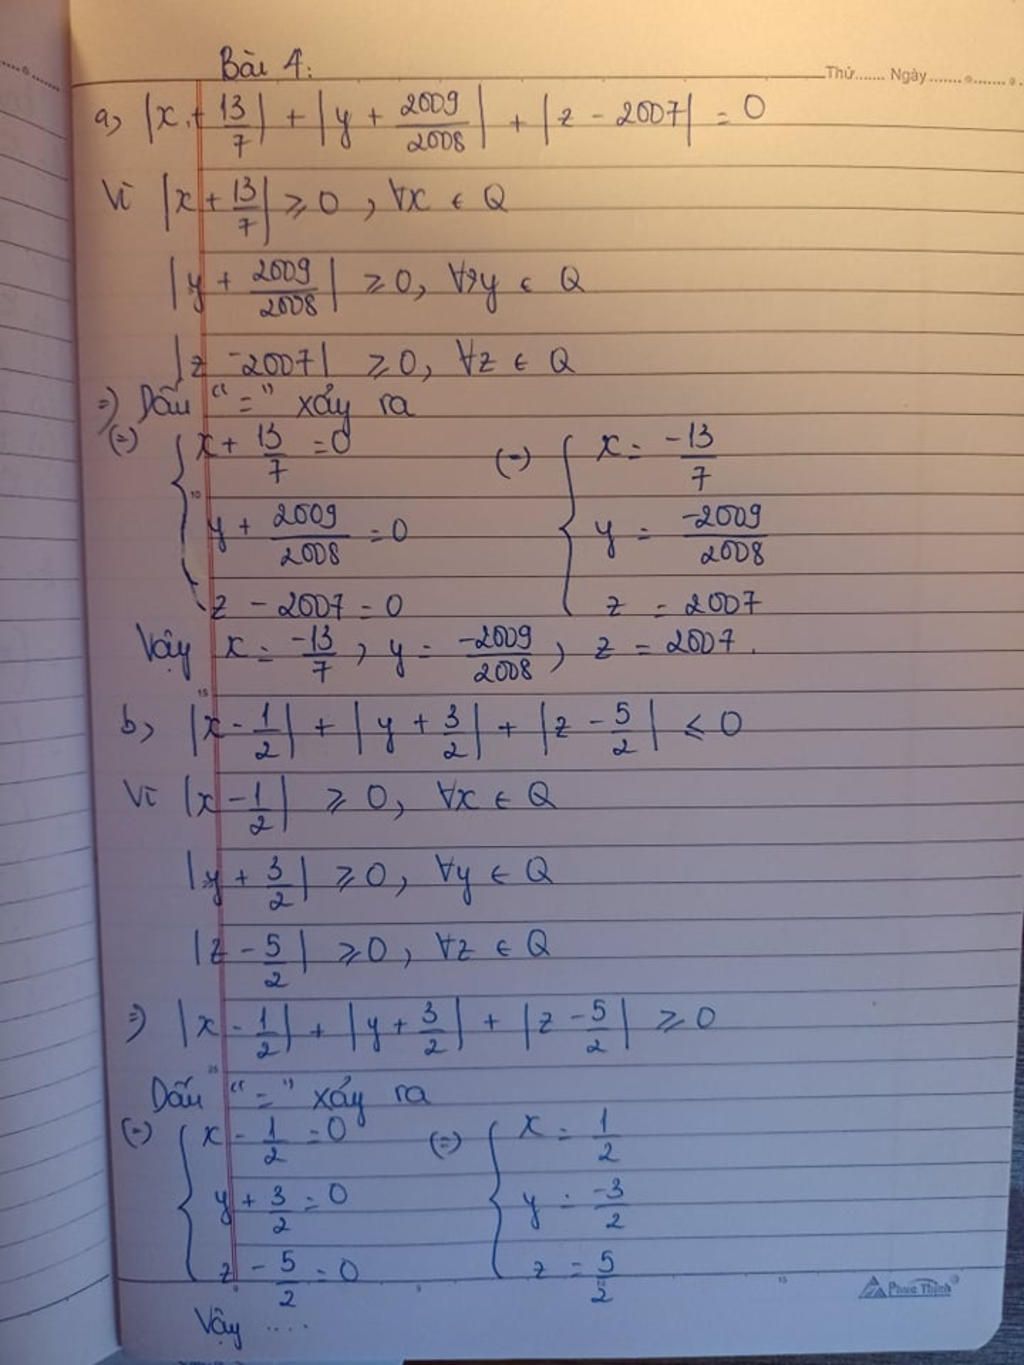 Bài 4:
Thứ....... Ngày.......
a, |x + 13/7| + |y + 2009/2008| + |z - 2007| = 0
Vì |x + 13/7| ⩾ 0, ∀x ∈ Q
|y + 2009/2008| ⩾ 0, ∀y ∈ Q
|z - 2007| ⩾ 0, ∀z ∈ Q
=) Dấu "=" xảy ra
(=) { x + 13/7 = 0 (=) { x = -13/7
y + 2009/2008 = 0 y = -2009/2008
z - 2007 = 0 z = 2007
Vậy x = -13/7, y = -2009/2008, z = 2007.
b, |x - 1/2| + |y + 3/2| + |z - 5/2| ⩽ 0
Vì |x - 1/2| ⩾ 0, ∀x ∈ Q
|y + 3/2| ⩾ 0, ∀y ∈ Q
|z - 5/2| ⩾ 0, ∀z ∈ Q
=) |x - 1/2| + |y + 3/2| + |z - 5/2| ⩾ 0
Dấu "=" xảy ra
(=) { x - 1/2 = 0 (=) { x = 1/2
y + 3/2 = 0 y = -3/2
z - 5/2 = 0 z = 5/2
Phúc Thịnh
Vậy ....